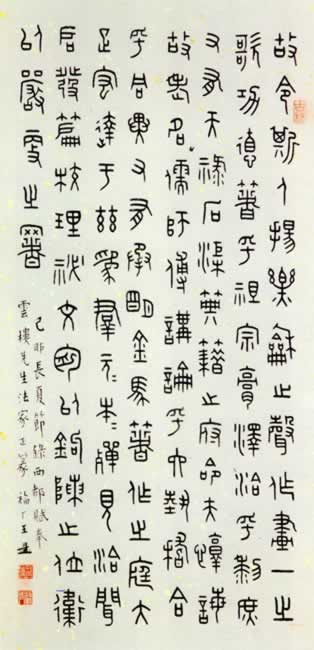 故令斯人揚樂龢之聲作畫一之
歌功德著乎祖宗膏澤洽乎黎庶
又有天祿石渠典籍之府命夫惇誨
故老名儒師傅講論乎六藝稽合
乎同異又有承明金馬著作之庭大
疋宏達于茲為羣元=本=殫見洽聞
启發篇校理祕文周以鉤陳之位衛
以嚴更之署
己卯長夏節錄西都賦奉
雲樓先生法家正篆 福厂王禔